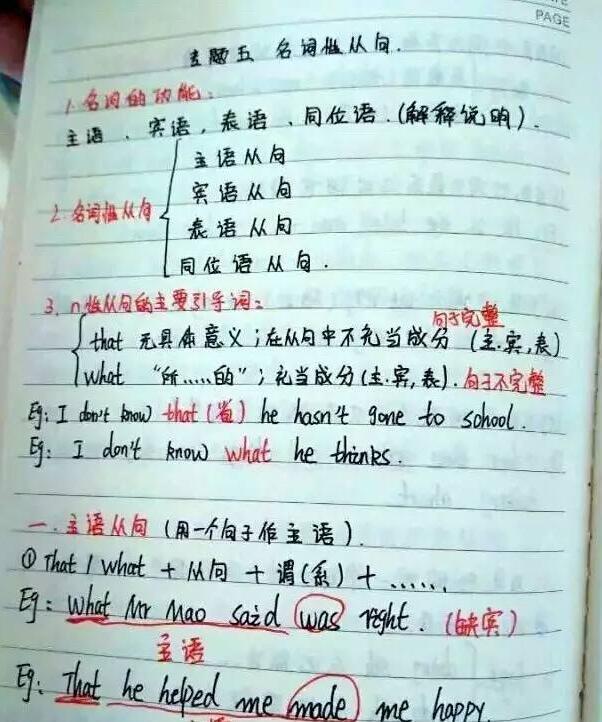 PAGE
专题五 名词性从句.
1. 名词的功能:
主语、宾语,表语、同位语.(解释说明).
主语从句
宾语从句
2. 名词性从句
表语从句
同位语从句.
3. n性从句的主要引导词:
句子完整
that 无具体意义;在从句中不充当成分 (主.宾,表)
what “所……的”;充当成分(主.宾,表).句子不完整
Eg: I don't know that (省) he hasn't gone to school.
Eg: I don't know what he thinks.
一. 主语从句 (用一个句子作主语).
① That / what + 从句 + 谓(系) + ......
Eg: What Mr Mao said was right. (缺宾)
主语
Eg: That he helped me made me happy